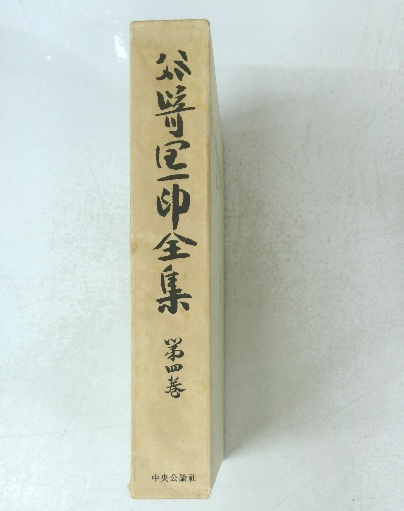 谷崎潤一郎全集
第四巻
中央公論社